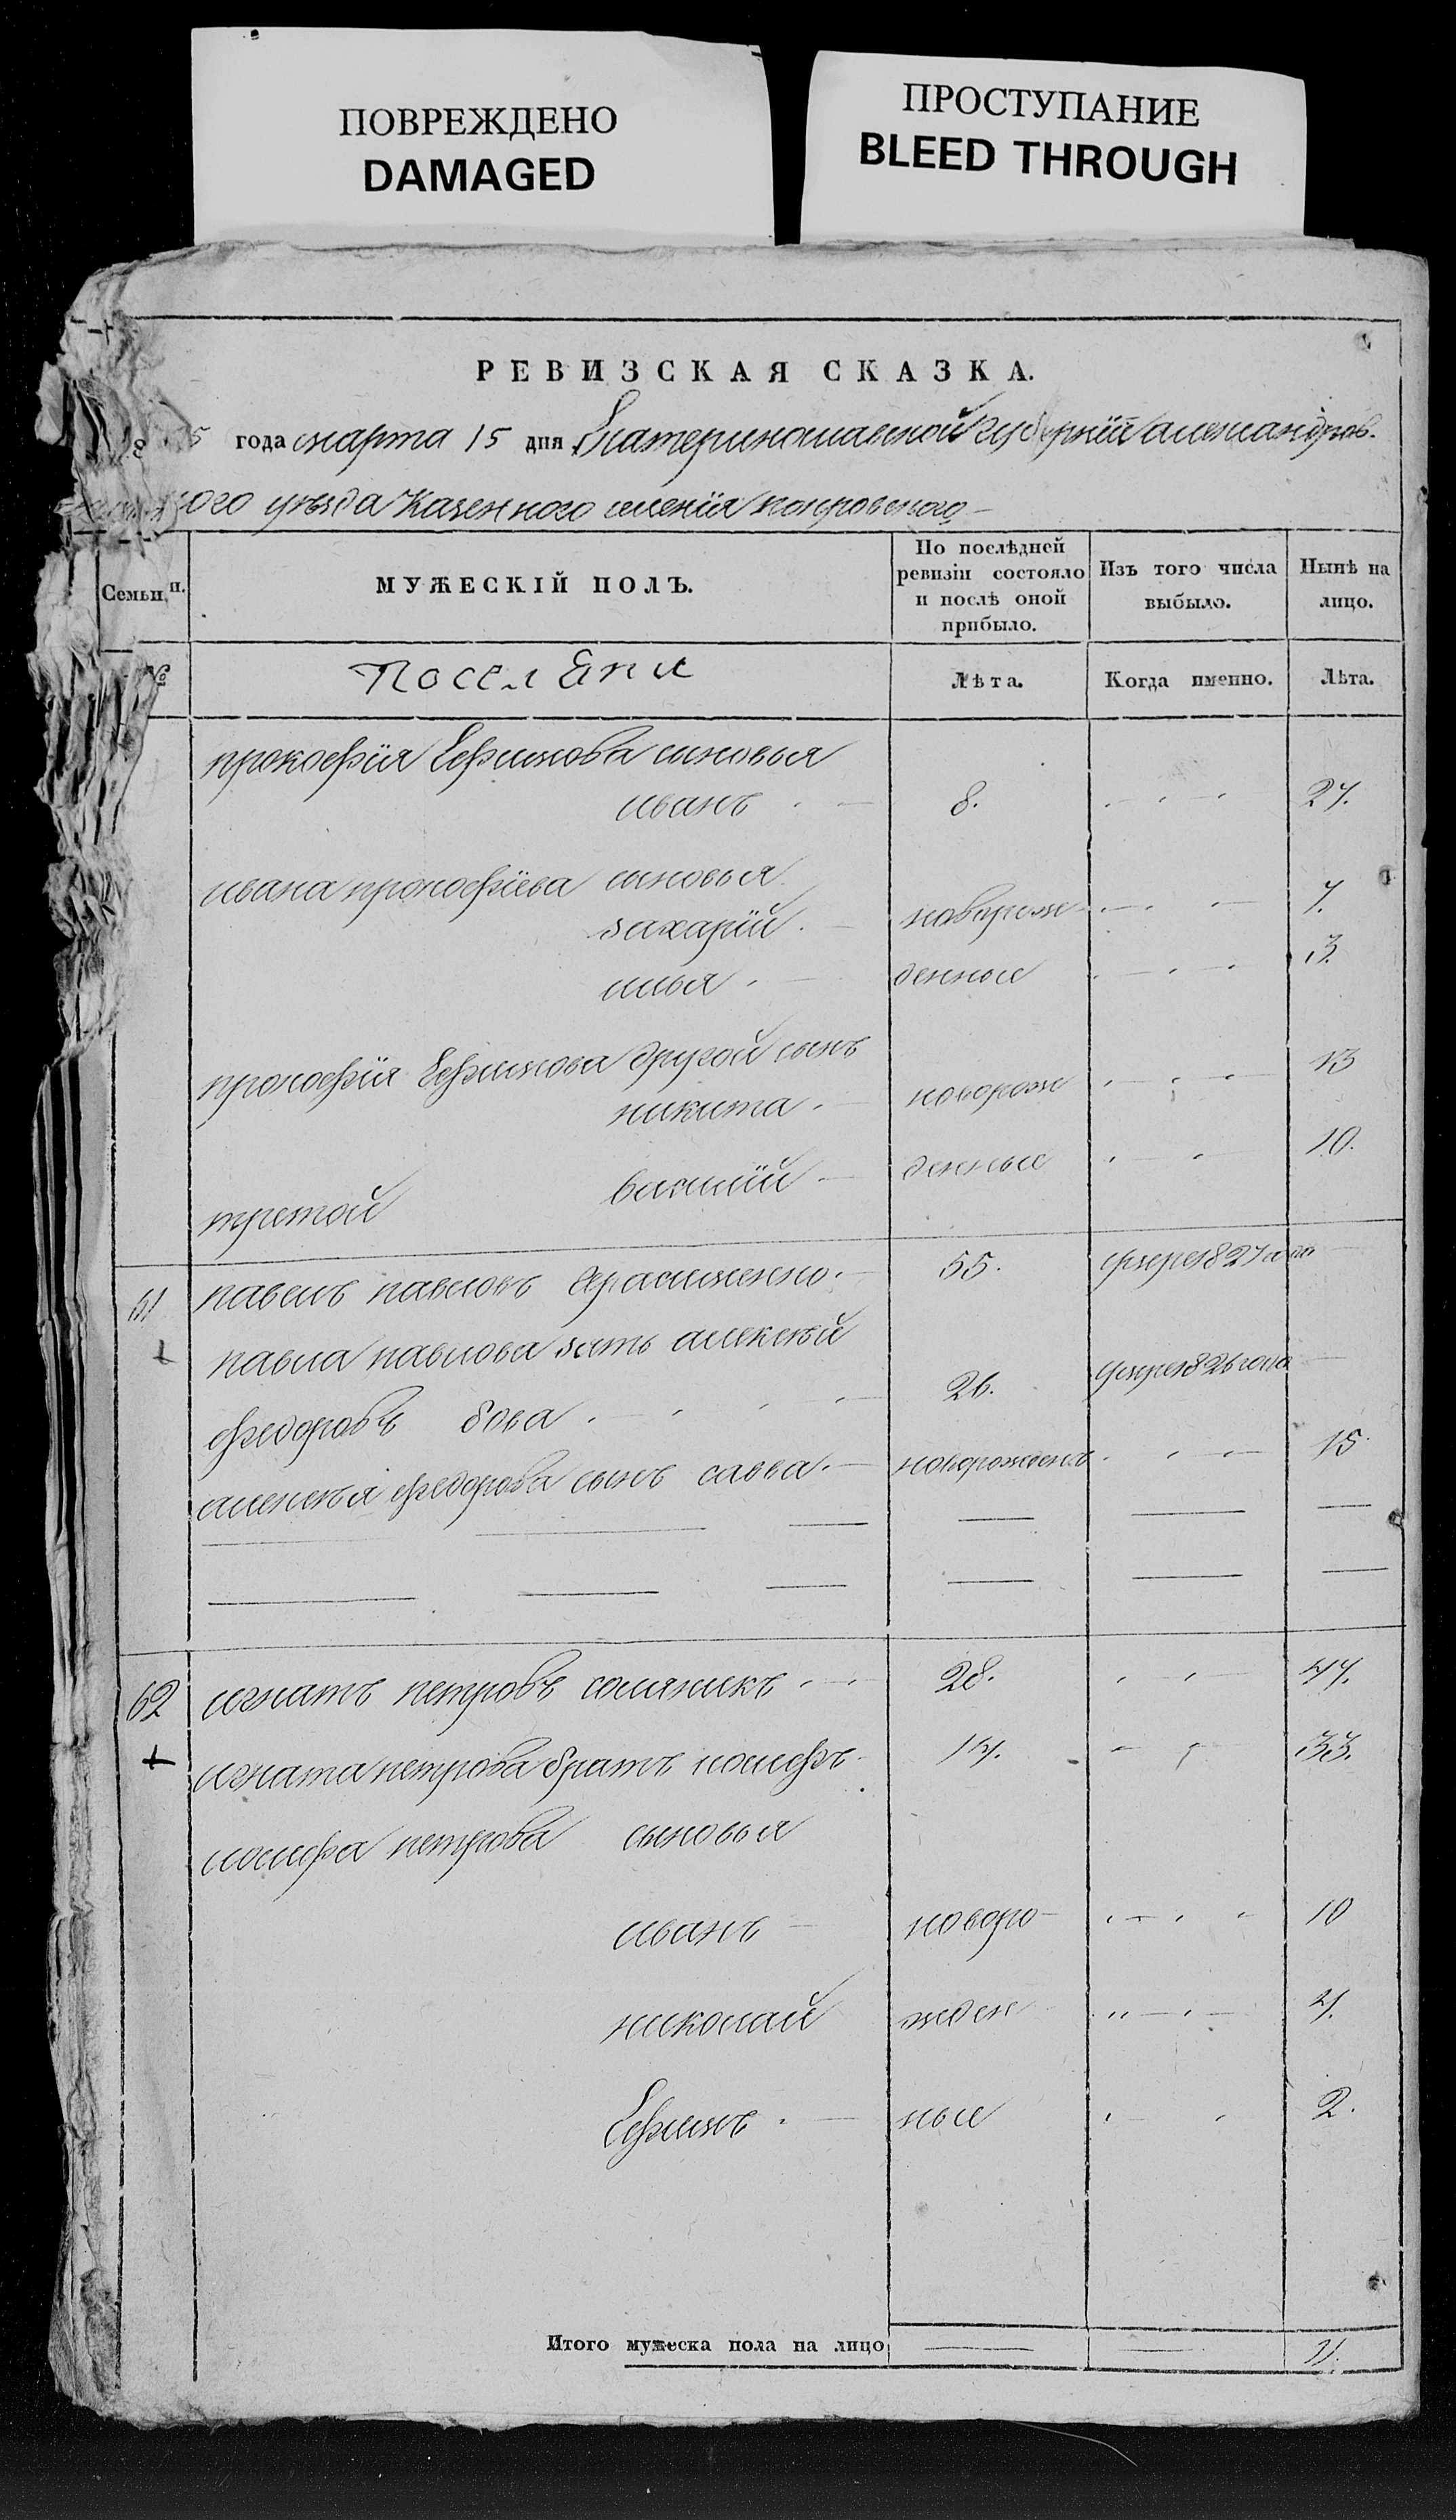 ПОВРЕЖДЕНО
DAMAGED
ПРОСТУПАНИЕ
BLEED THROUGH
РЕВИЗСКАЯ СКАЗКА.
5 года марта 15 дня Екатеринославской губернїи александров-
ского уезда Казенного селенїя покровского
Семьи. МУЖЕСКІЙ ПОЛЪ. По послѣдней ревизіи состояло и послѣ оной прибыло. Изъ того числа выбыло. Нынѣ на лицо.
№ Поселяни Лѣта. Когда именно. Лѣта.
прокофїя Ефимова сыновья
иванъ 8. 27.
ивана прокофїева сыновья
захарїй новорож 7.
илья денные 3.
прокофїя Ефимова другой сынъ
никита новорож 13
третой василїй денные 10.
61 павелъ павловъ Герасименко 55. умеръ 827 года
павла павлова зять алексей
федоровъ бова 26. умеръ 826 года
алексея федорова сынъ савва новорожденъ 15
62 игнатъ петровъ соляникъ 28. 47.
игната петрова братъ иосифъ 14. 33.
иосифа петрова сыновья
иванъ новоро 10
николай жден 4.
Ефимъ ные 2.
Итого мужеска пола на лицо 11.